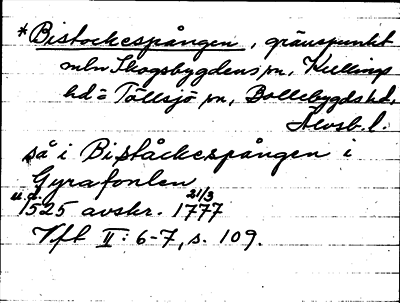 *Bistockespången, gränspunkt
mln Skogsbygdens sn, Kullings
hd o Töllsjö sn, Bollebygds hd,
Älvsb. l.
så i Biståckespången i
Gyrafonlen
u.d.
1525 avskr. 21/3 1777
Vfl II: 6-7, s. 109.